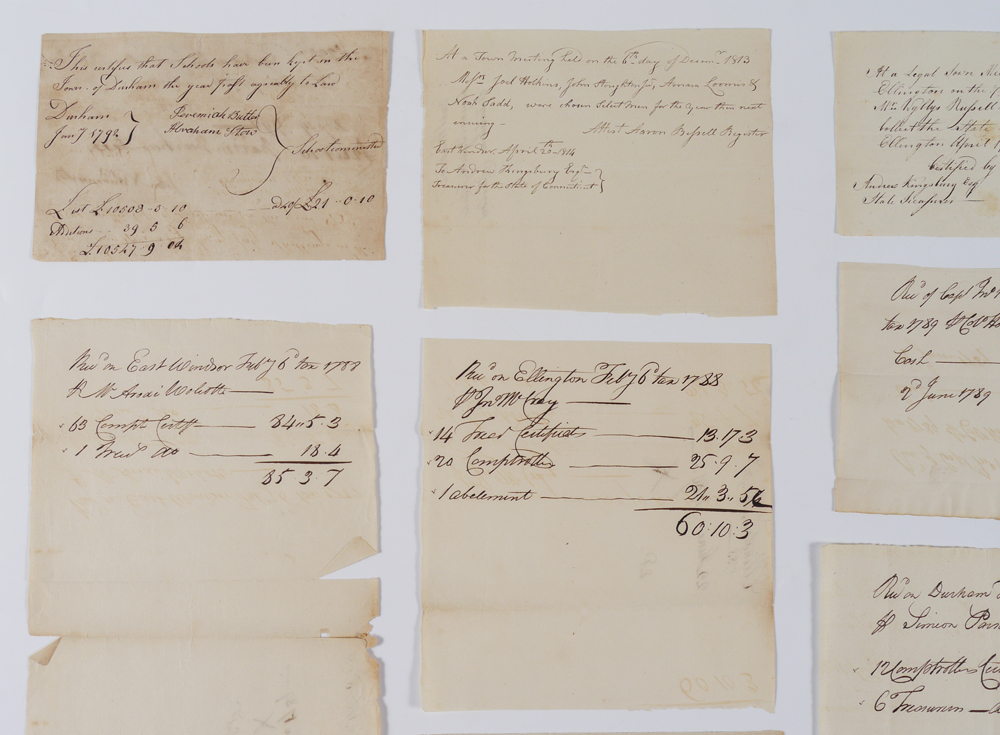 This certifies that Schools have been kept in the
Town of Durham the year past agreably to Law
Durham
Jany 7. 1792
Jeremiah Butler
Abraham Stow
Schoolcommittee
List £10508-0-10
Aditions 39 5 6
£10547-9-04
£21-0-10
At a Town Meeting held on the 6th day of Decemr 1813
Messrs Joel Hotkins, John Stoughton Jr, Amasa Loomis &
Noah Sadd, were chosen Select Men for the Year then next
ensuing-
Attest Aaron Bissell Register
East Windsor April 20-1814
To Andrew Kingsbury Esqr
Treasurer for the State of Connecticut
At a Legal Town
Ellington on the
Mr Kyllys Russell
Collect the State
Ellington April
Certified by
Andrew Kingsbury Esq
State Treasurer
Recd on East Windsor Feby 6d tax 1788
63 Compt Certif 84"5.3
1 Do 18.4
85 3 7
Recd on Ellington Feby 6d tax 1788
Jno McCray
14 Treasr Certificats 13.17 3
20 Comptrollers 25.9.7
1 abatement 21"3"5
60:10:3
Recd of Capt
tax 1789
Cash
2d June 1789
Recd on Durham
Simeon
12 Comptrollers
6 Treasurers